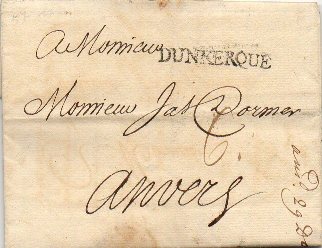 A Monsieur
DUNKERQUE
Monsieur Ja: Dormer
6
Anvers